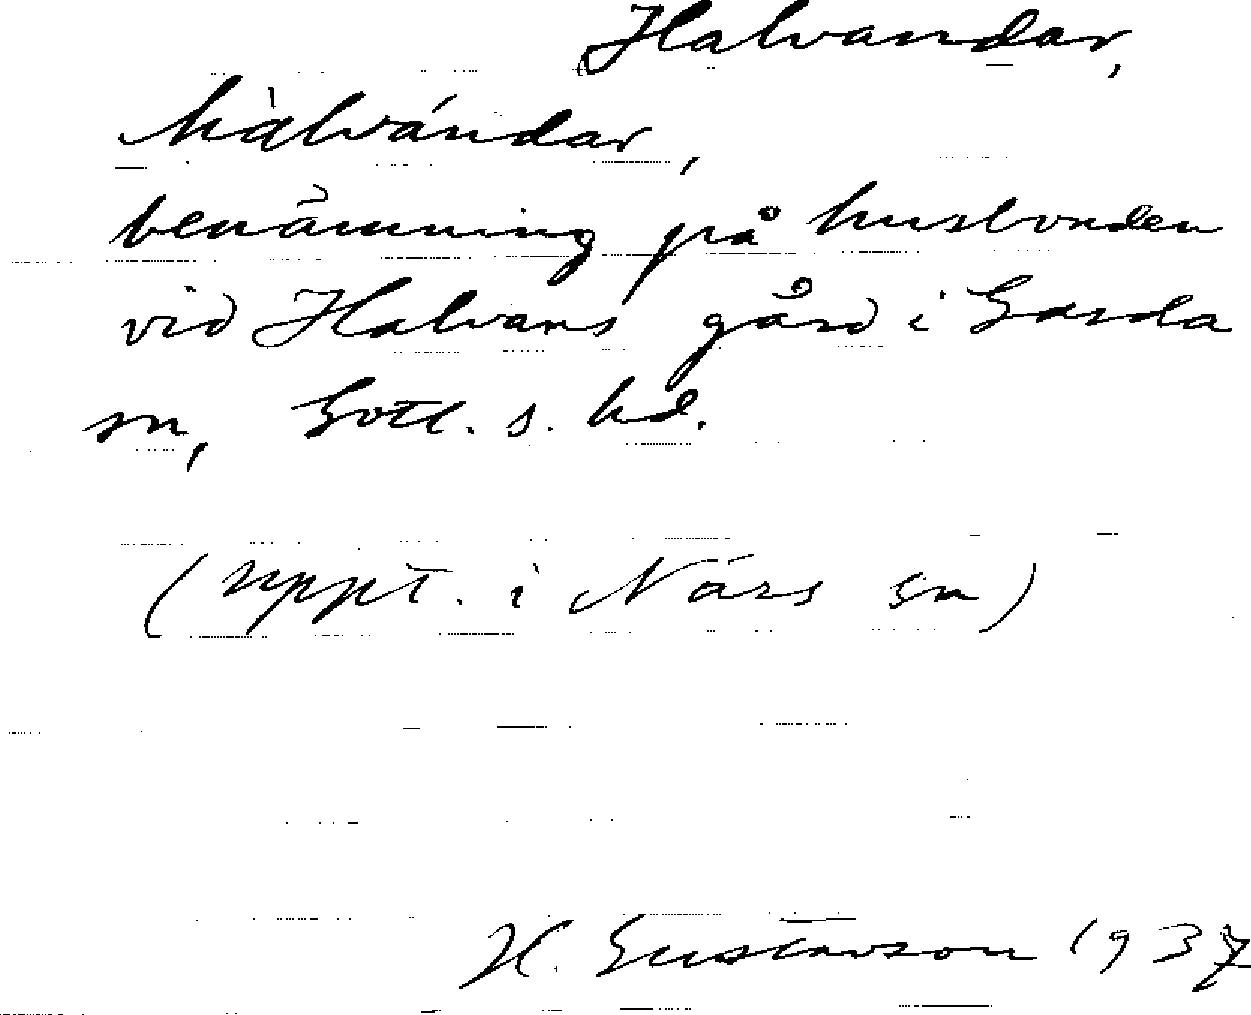 Halvandar,
hàlvándar,
benämning på husbonden
vid Halvans gård i Garda
sn, Gotl. s. hd.
(uppt. i När s sn)
H. Gustavson 1937